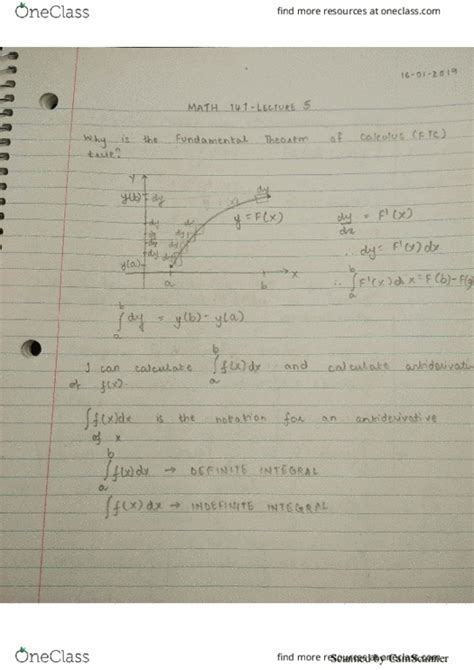 OneClass
find more resources at oneclass.com
16-01-2019
MATH 141-LECTURE 5
Why is the Fundamental Theorem of Calculus (FTC)
true?
y
y(b) dy
dy
y = F(x)
dy/dx = F'(x)
dy
dy
dy
dy
∴ dy = F'(x) dx
y(a)
a
b
x
∴ ∫_a^b F'(x) dx = F(b)-F(a)
∫_a^b dy = y(b) - y(a)
I can calculate ∫_a^b f(x) dx and calculate
of f(x).
∫f(x)dx is the notation for an antiderivative
of x
∫_a^b f(x) dx → DEFINITE INTEGRAL
∫f(x) dx → INDEFINITE INTEGRAL
OneClass
find more resources at oneclass.com
Scanned by CamScanner